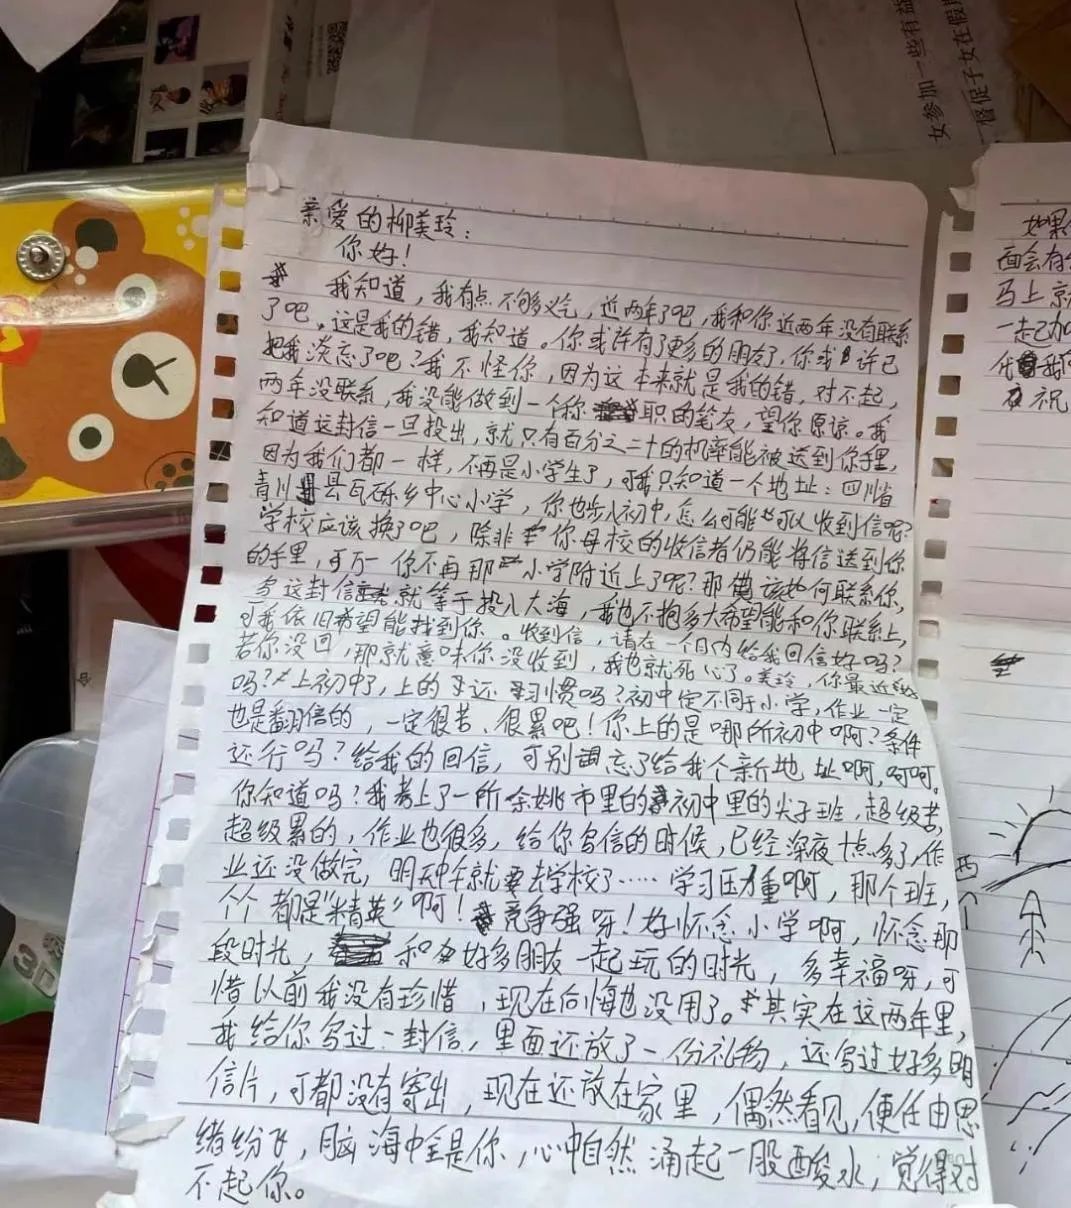 女参加一些有益
督促子女在假期
亲爱的柳美玲：
你好！
我知道，我有点不够义气，近两年了吧，我和你近两年没有联系
了吧。这是我的错，我知道。你或许有了更多的朋友，你或许已
把我淡忘了吧？我不怪你，因为这本来就是我的错，对不起，
两年没联系，我没能做到一个你职的笔友，望你原谅。我
知道这封信一旦投出，就只有百分之二十的机率能被送到你手里，
因为我们都一样，不再是小学生了，可我只知道一个地址：四川省
青川县瓦砾乡中心小学，你也步入初中，怎么可能可以收到信呢？
学校应该换了吧，除非你母校的收信者仍能将信送到你
的手里，可万一你不再那小学附近上了呢？那该如何联系你，
写这封信就等于投入大海，我也不抱多大希望能和你联系上，
可我依旧希望能找到你。收到信，请在一个月内给我回信好吗？
若你没回，那就意味你没收到，我也就死心了。美玲，你最近好
吗？上初中了，上的还习惯吗？初中定不同于小学，作业一定
也是翻倍的，一定很苦、很累吧！你上的是哪所初中啊？条件
还行吗？给我的回信，可别忘了给我个新地址啊，呵呵。
你知道吗？我考上了一所余姚市里的初中里的尖子班，超级苦，
超级累的，作业也很多，给你写信的时候，已经深夜十点多了，作
业还没做完，明天中午就要去学校了……学习压力重啊，那个班，
个个都是“精英”啊！竞争强呀！好怀念小学啊，怀念那
段时光，和好多朋友一起玩的时光，多幸福呀，可
惜以前我没有珍惜，现在后悔也没用了。其实在这两年里，
我给你写过一封信，里面还放了一份礼物，还写过好多明
信片，可都没有寄出，现在还放在家里，偶然看见，便任由思
绪纷飞，脑海中全是你，心中自然涌起一股酸水，觉得对
不起你。
如果
面会有
马上就
一起加
我
祝
3D